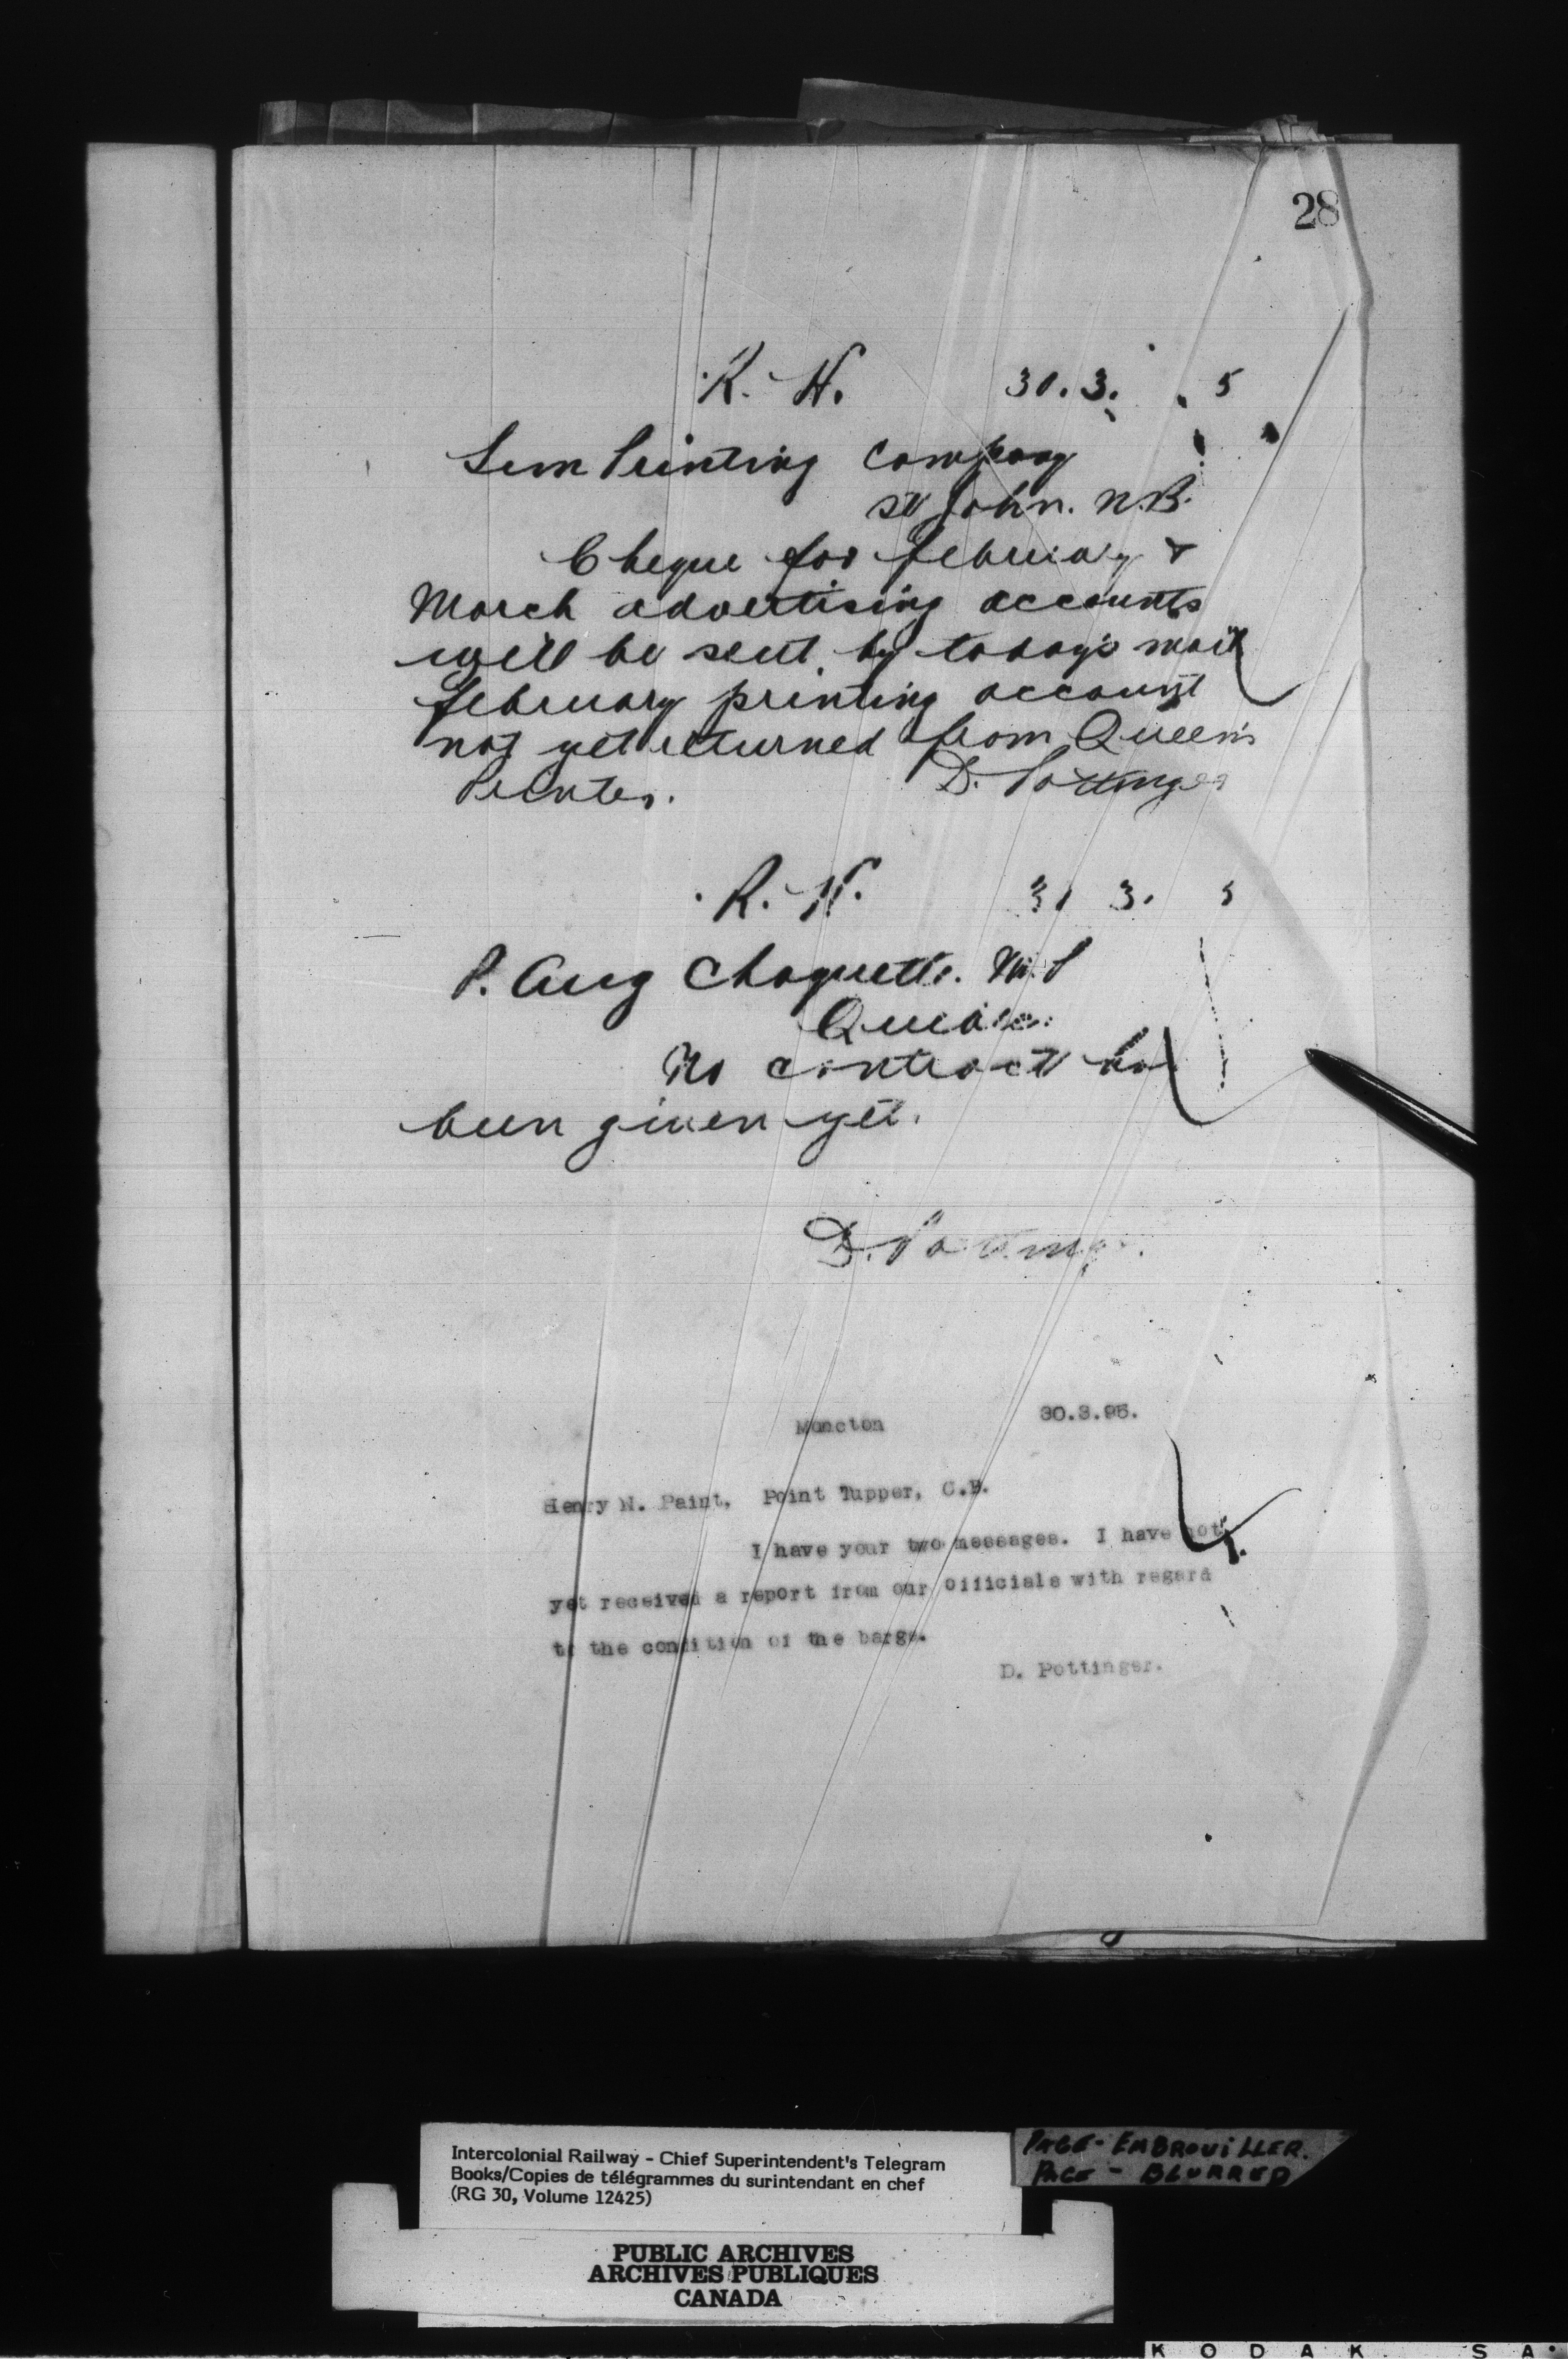 28
R. H. 30. 3. 5
Sun Printing Company
St John. N.B.
Cheque for february &
March advertising accounts
will be sent by today's mail
february printing account
not yet returned from Queen's
Printer. D. Pottinger
R. H. 3 3. 5
P. Aug Choquette. M.P
Quebec
No contract has
been given yet.
D. Pottinger.
Moncton 30.3.95.
Henry N. Paint, Point Tupper, C.B.
I have your two messages. I have not
yet received a report from our Officials with regard
to the condition of the barge.
D. Pottinger.
Intercolonial Railway - Chief Superintendent's Telegram
Books/Copies de télégrammes du surintendant en chef
(RG 30, Volume 12425)
PAGE - EMBROUILLER.
PAGE - BLURRED
PUBLIC ARCHIVES
ARCHIVES PUBLIQUES
CANADA
KODAK SA